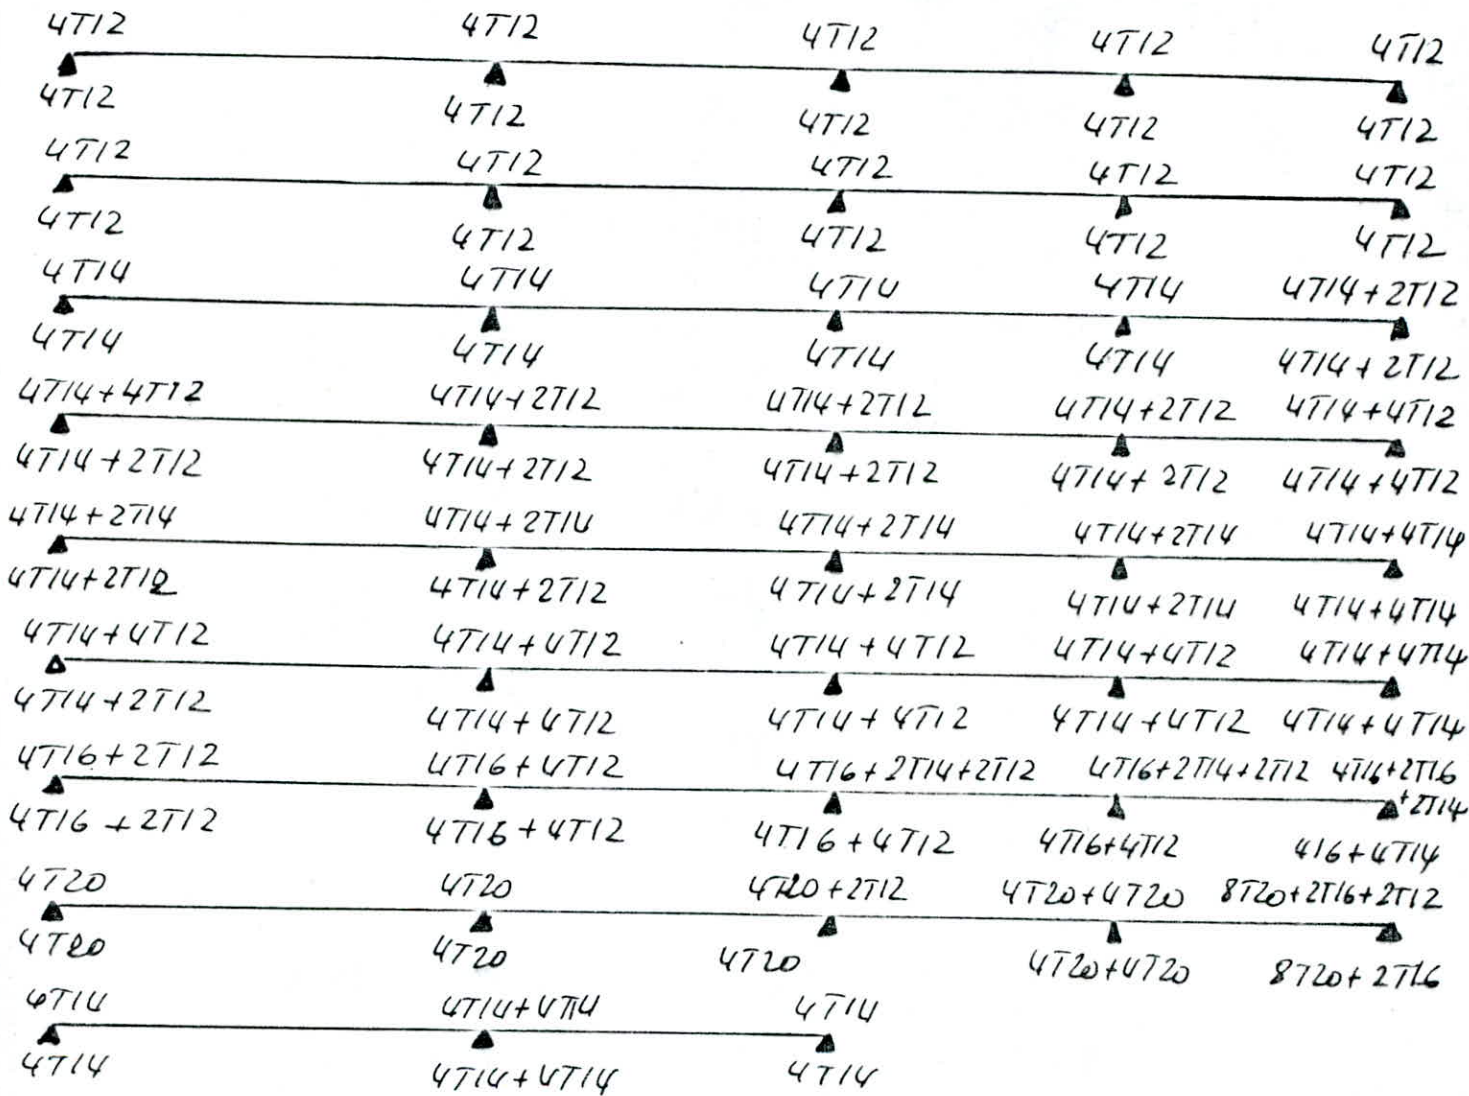 4T12 4T12 4T12 4T12 4T12
4T12 4T12 4T12 4T12 4T12
4T12 4T12 4T12 4T12 4T12
4T12 4T12 4T12 4T12 4T12
4T14 4T14 4T14 4T14 4T14+2T12
4T14 4T14 4T14 4T14 4T14+2T12
4T14+4T12 4T14+2T12 4T14+2T12 4T14+2T12 4T14+4T12
4T14+2T12 4T14+2T12 4T14+2T12 4T14+2T12 4T14+4T12
4T14+2T14 4T14+2T14 4T14+2T14 4T14+2T14 4T14+4T14
4T14+2T12 4T14+2T12 4T14+2T14 4T14+2T14 4T14+4T14
4T14+4T12 4T14+4T12 4T14+4T12 4T14+4T12 4T14+4T14
4T14+2T12 4T14+4T12 4T14+4T12 4T14+4T12 4T14+4T14
4T16+2T12 4T16+4T12 4T16+2T14+2T12 4T16+2T14+2T12 4T16+2T16
+2T14
4T16+2T12 4T16+4T12 4T16+4T12 4T16+4T12 416+4T14
4T20 4T20 4T20+2T12 4T20+4T20 8T20+2T16+2T12
4T20 4T20 4T20 4T20+4T20 8T20+2T16
4T14 4T14+4T14 4T14
4T14 4T14+4T14 4T14